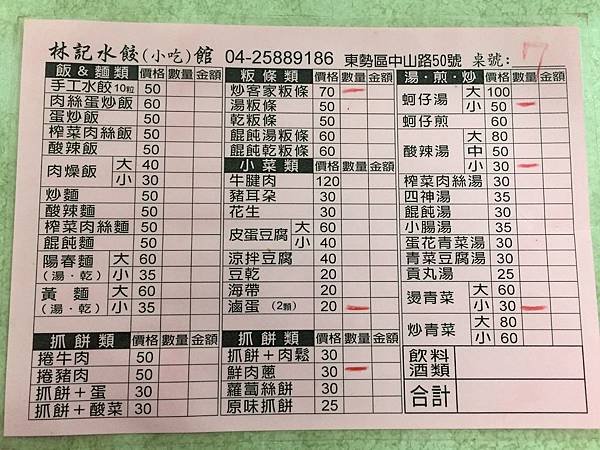 林記水餃(小吃)館 04-25889186 東勢區中山路50號 桌號: 7
飯 & 麵類 價格 數量 金額
手工水餃10粒 50
肉絲蛋炒飯 60
蛋炒飯 50
榨菜肉絲飯 50
酸辣飯 50
肉燥飯 大 40
小 30
炒麵 50
酸辣麵 50
榨菜肉絲麵 50
餛飩麵 50
陽春麵 (湯·乾) 大 60
小 35
黃麵 (湯·乾) 大 60
小 35
抓餅類 價格 數量 金額
捲牛肉 50
捲豬肉 50
抓餅+蛋 30
抓餅+酸菜 30
粄條類 價格 數量 金額
炒客家粄條 70
湯粄條 50
乾粄條 50
餛飩湯粄條 60
餛飩乾粄條 60
小菜類 價格 數量 金額
牛腱肉 120
豬耳朵 30
花生 30
皮蛋豆腐 大 60
小 40
涼拌豆腐 40
豆乾 20
海帶 20
滷蛋 (2顆) 20
抓餅類 價格 數量 金額
抓餅+肉鬆 30
鮮肉蔥 30
蘿蔔絲餅 30
原味抓餅 25
湯·煎·炒 價格 數量 金額
蚵仔湯 大 100
小 50
蚵仔煎 60
酸辣湯 大 80
中 50
小 30
榨菜肉絲湯 30
四神湯 35
餛飩湯 30
小腸湯 35
蛋花青菜湯 30
青菜豆腐湯 30
貢丸湯 25
燙青菜 大 60
小 30
炒青菜 大 80
小 60
飲料
酒類
合計